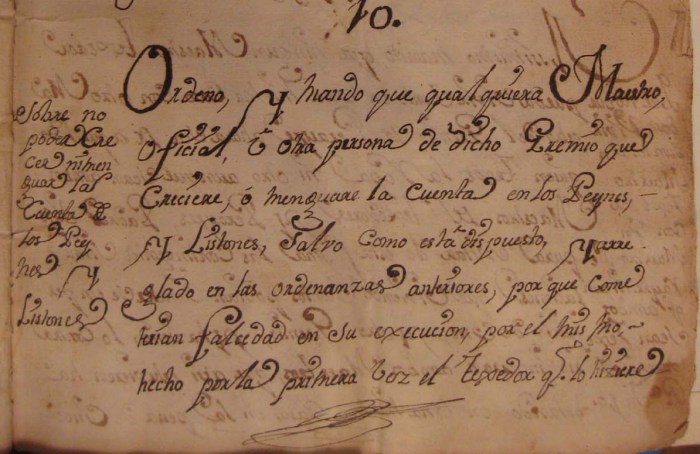 10.
Sobre no
poder Cre
cer ni men
guar las
Cuentas
los Pey
nes y
Listones
Ordeno, y mando que qualquiera Maestro,
Oficial, ô otra persona de dicho Gremio que
Creciere, ó menguare la Cuenta en los Peynes,
y Listones, Salvo como està dispuesto, y arre-
glado en las ordenanzas anteriores, por que come
terian falcedad en su execucion, por el mismo
hecho por la primera vez el texedor q.e lo hiziere